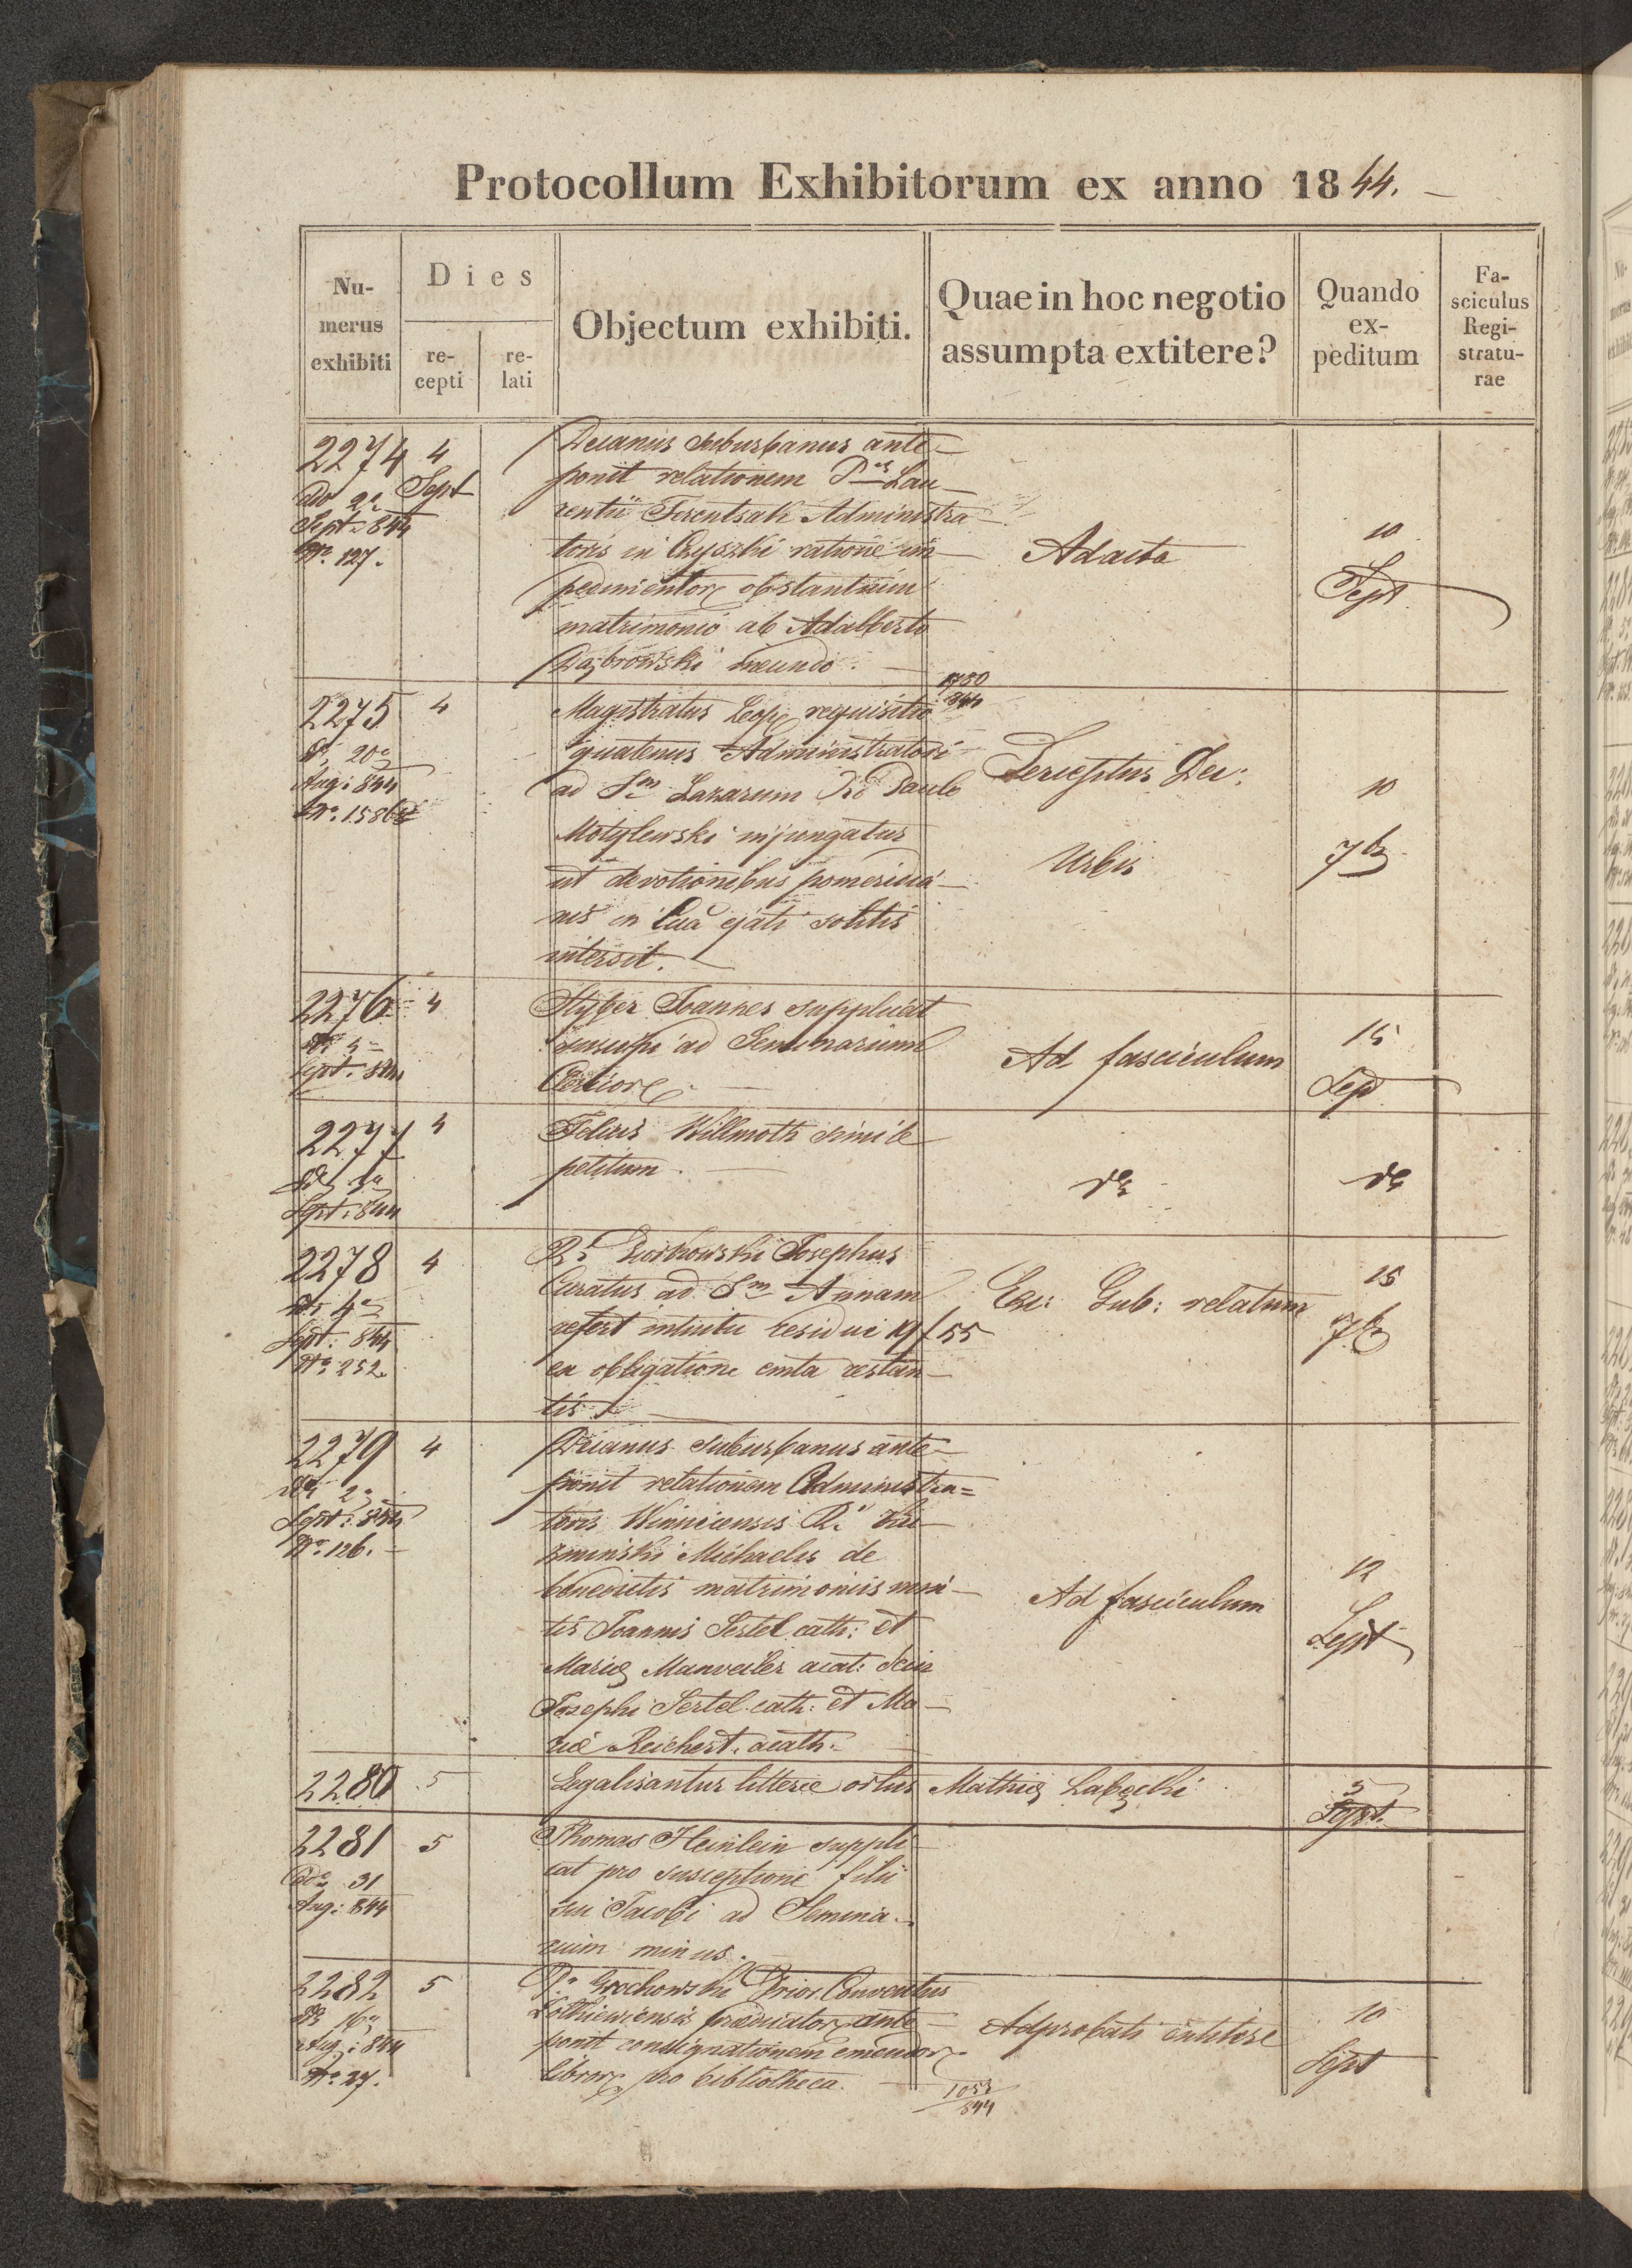 Protocollum Exhibitorum ex anno 1844.
Numerus exhibiti
Dies
recepti
relati
Objectum exhibiti.
Quae in hoc negotio assumpta extitere?
Quando expeditum
Fasciculus Registraturae
2274
4
Sept
2a
Sept: 844
No. 127.
Decanus suburbanus ante-
ponit relationem Lau-
rentii Administra-
toris in Czyszki ratione im-
pedimentor obstantium
matrimonio ab Adalberto
Dąbrowski ineundo.
Ad acta
10
Sept
2275
4
20
Aug: 844
No. 15868
Magistratus Leop requisitio
1750
844
quatenus Administratori
ad Sm Lazarum Paulo
Motylewski injungatur
ut devotionibus pomeridia-
nis in Ecca ejati solitis
intersit.
Dec:
Urbis
10
7b
2276
4
Sept: 844
Joannes supplicat
suscipi ad Seminarium
Ad fasciculum
15
Sep
2277
4
Sept: 844
Felix Willmoth simile
petitum.
do
do
2278
4
4
Sept: 844
No. 252.
Josephus
Curatus ad Sm Annam
refert intuitu residui 19 f 55
ex obligatione emta restan-
tis.
Exc: Gub: relatum
15
7b
2279
4
2
Sept: 844
No. 126.
Decanus suburbanus ante-
ponit relationem Administra=
toris Winnicensis
Michaelis de
benedictis matrimoniis mix-
tis Joannis Sertel cath: et
Maria Manweiler acat:
Josephi Sertel cath: et Ma-
ria Reichert. acath.
Ad fasciculum
12
Sept
2280
5
Legalisantur litterae ortus Mathiae Łabęcki
5
Sept.
2281
5
31
Aug: 844
Thomas Heinlein suppli-
cat pro susceptione filii
sui Jacobi ad Semina-
rium minus.
2282
5
16
Aug: 844
No. 27.
Grochowski Prior Conventus
Żółkiewiensis Praedicator ante-
ponit consignationem emendor
libror pro bibliotheca.
1053
844
Adprobati extitere
10
Sept